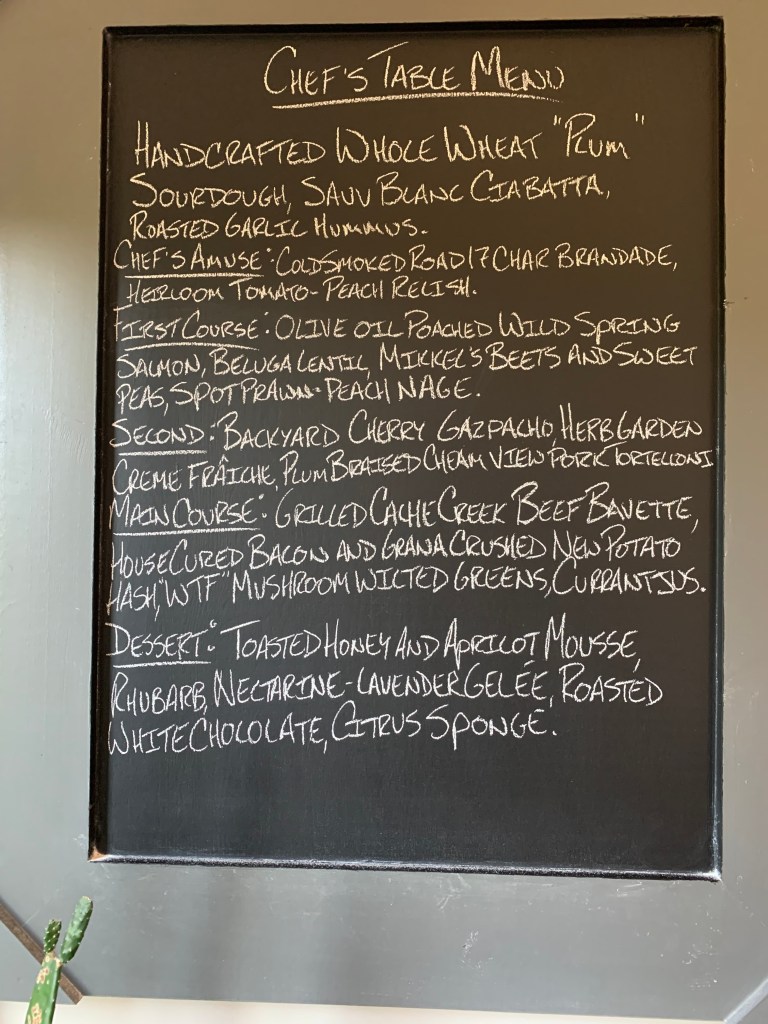 CHEF'S TABLE MENU
HANDCRAFTED WHOLE WHEAT "PLUM"
SOURDOUGH, SAUV BLANC CIABATTA,
ROASTED GARLIC HUMMUS.
CHEF'S AMUSE: COLD SMOKED ROAD 17 CHAR BRANDADE,
HEIRLOOM TOMATO-PEACH RELISH.
FIRST COURSE: OLIVE OIL POACHED WILD SPRING
SALMON, BELUGA LENTIL, MIKKEL'S BEETS AND SWEET
PEAS, SPOT PRAWN-PEACH NAGE.
SECOND: BACKYARD CHERRY GAZPACHO, HERB GARDEN
CREME FRAÎCHE, PLUM BRAISED CHEAM VIEW PORK TORTELLONI
MAIN COURSE: GRILLED CACHE CREEK BEEF BAVETTE,
HOUSE CURED BACON AND GRANA CRUSHED NEW POTATO
HASH, "WTF" MUSHROOM WILTED GREENS, CURRANT JUS.
DESSERT: TOASTED HONEY AND APRICOT MOUSSE,
RHUBARB, NECTARINE-LAVENDER GELÉE, ROASTED
WHITE CHOCOLATE, CITRUS SPONGE.